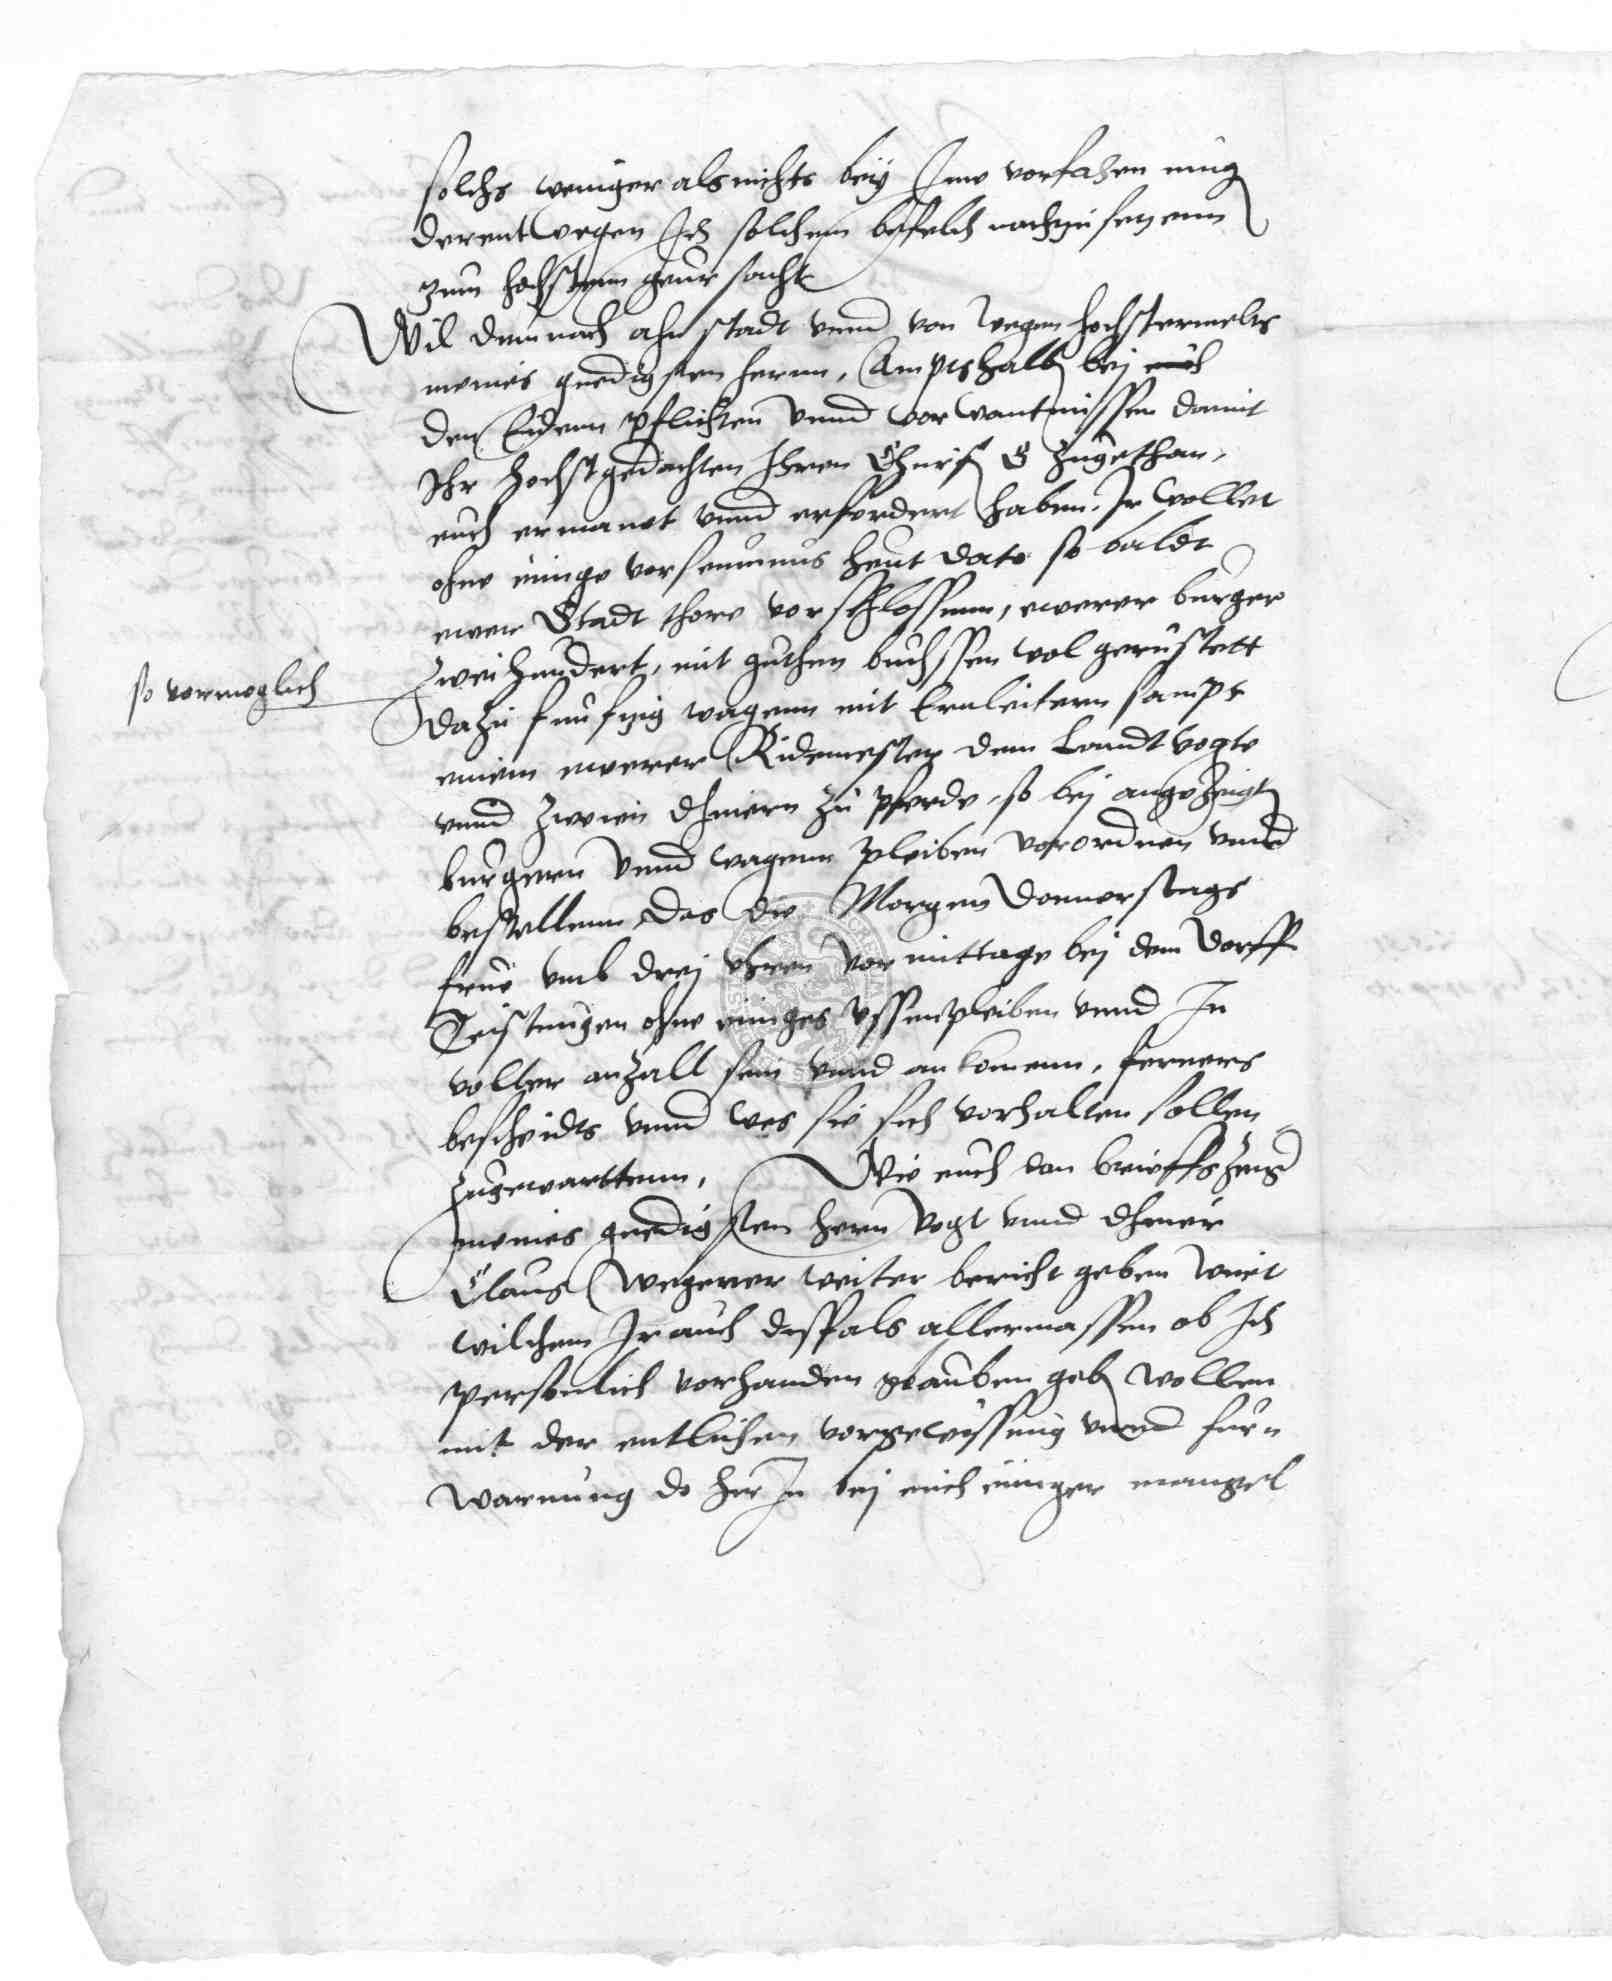 solchs weniger als nichts bey Ime vorfahen mug
derentwegen Ich solchem befelch nachzusetzenn
zum hochstenn geursacht
Wil demnach ahn stadt vnnd von wegen hochstermelts
meines gnedigsten hernn, Ampts halb bei
den Eidenn pflichten vnnd vorwantnissen damit
Ihr hochstgedachten Ihren Churf G zugethan,
euch ermanet vnnd erfordert haben, Ir wollet
ohne einige vorseumnus heut dato so baldt
ewer Stadt thore vorschlossenn, ewerer burger
zweihundert, mit guthen buchssen wol gerustett
so vormoglich
Dazu funfzig wagenn mit Ernleitern sampt
einem ewerer Ridemester dem Landtvogte
vnnd zweien dhienern zu pferde, so bei angezeigt
burgern vnnd wagenn pleiben vorordnen vnnd
bestellenn das die Morgen Donnerstags
frue vmb drei vhren vor mittage bei dem Dorff
Teistungen ohne einiges vssenpleiben vnnd In
voller anzall sein vnnd ankomenn, ferners
bescheidts vnnd wes sie sich vorhalten sollen
zugewarttenn, Wie euch dan brieffszeig
meines gnedigsten hern Vogt vnnd dhiener
Claus Wegener weiter bericht geben wirt
wilchem Ir auch disfals allermassen ob Ich
personlich vorhanden glauben geb wollen
mit der entlichen vorgewissung vnnd fur-
warnung do hir In bei euch einiger mangel